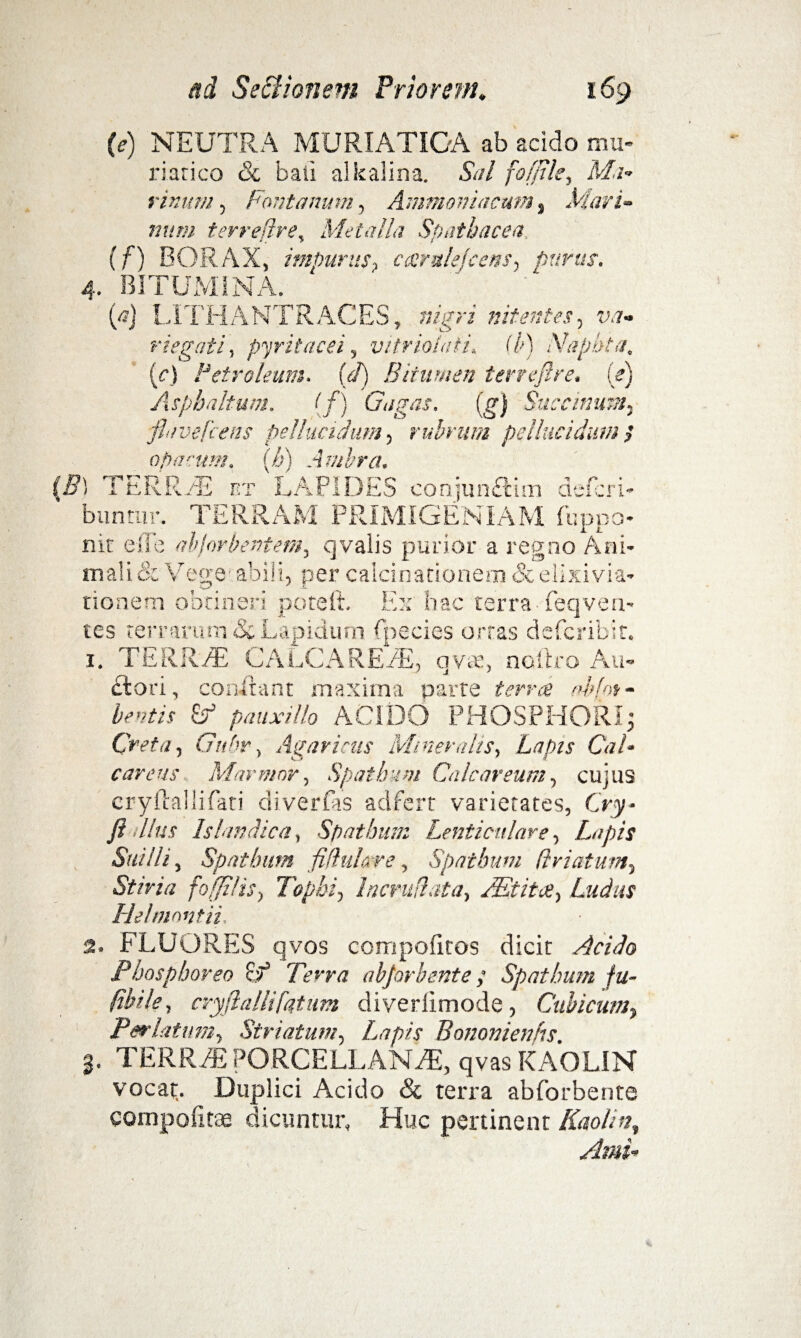 ad Sectionem Priorem. 169
(e) NEUTRA MURIATICA ab acido mu-
riatico & basi alkalina. Sal fossile, Ma-
rinum, Fontanum, Ammoniacum, Mari-
num terrestre, Metalla Spathacea.
(f) BORAX, impurus, cærulescens, purus.
4. BITUMINA.
(a) LITHANTRACES, nigri nitentes, va-
riegati, pyritacei, vitriolati. (b) Naphta.
(c) Petroleum. (d) Bitumen terrestre. (e)
Asphaltum. (f) Gagas. (g) Succinum,
flavescens pellucidum, rubrum pellucidum;
opacum. (h) Ambra.
(B) TERRÆ ET LAPIDES conjunctim descri-
buntur. TERRAM PRIMIGENIAM suppo-
nit esse absorbentem, qvalis purior a regno Ani-
mali & Vegetabili, per calcinationem & elixivia-
tionem obtineri potest. Ex hac terra seqven-
tes terrarum & Lapidum species ortas describit.
1. TERRÆ CALCAREÆ, qvæ, nostro Au-
ctori, constant maxima parte terræ absor-
bentis & pauxillo ACIDO PHOSPHORI;
Creta, Guhr, Agaricus Mineralis, Lapis Cal-
careus. Marmor, Spathum Calcareum, cujus
crystallisati diversas adfert varietates, Cry-
stallus Islandica, Spathum Lenticulare, Lapis
Suilli, Spathum fistulare, Spathum striatum,
Stiria fossilis, Tophi, Incrustata, Ætitæ, Ludus
Helmontii.
2. FLUORES qvos compositos dicit Acido
Phosphoreo & Terra absorbente; Spathum fu-
sibile, crystallisatum diversimode, Cubicum,
Perlatum, Striatum, Lapis Bononiensis.
3. TERRÆ PORCELLANÆ, qvas KAOLIN
vocat. Duplici Acido & terra absorbente
compositæ dicuntur, Huc pertinent Kaolin,
Ami-